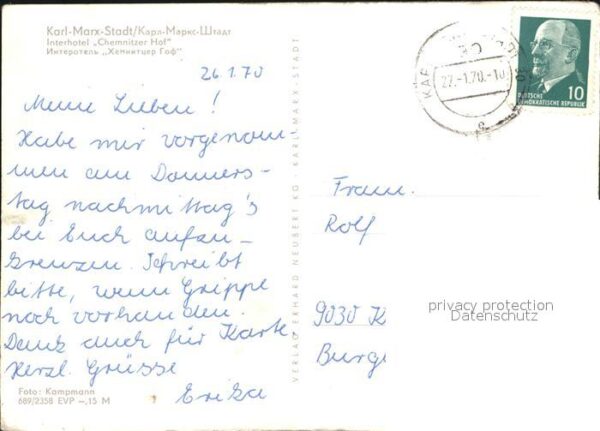 Karl-Marx-Stadt/Карл-Маркс-Штадт
Interhotel „Chemnitzer Hof"
Интеротель „Хемнитцер Гоф"
26.1.70
Meine Lieben!
Habe mir vorgenom-
men am Donners-
tag nachmittag's
bei Euch aufzu-
kreuzen. Schreibt
bitte, wenn Grippe
noch vorhanden.
Dank auch für Karte.
Herzl. Grüsse
Erika
Foto: Kampmann
689/2358 EVP -,15 M
VERLAG ERHARD NEUBERT KG · KARL-MARX-STADT
27.-1.70.-10
DEUTSCHE
DEMOKRATISCHE REPUBLIK
10
Fam.
Rolf
9030 K
Burg
privacy protection
Datenschutz